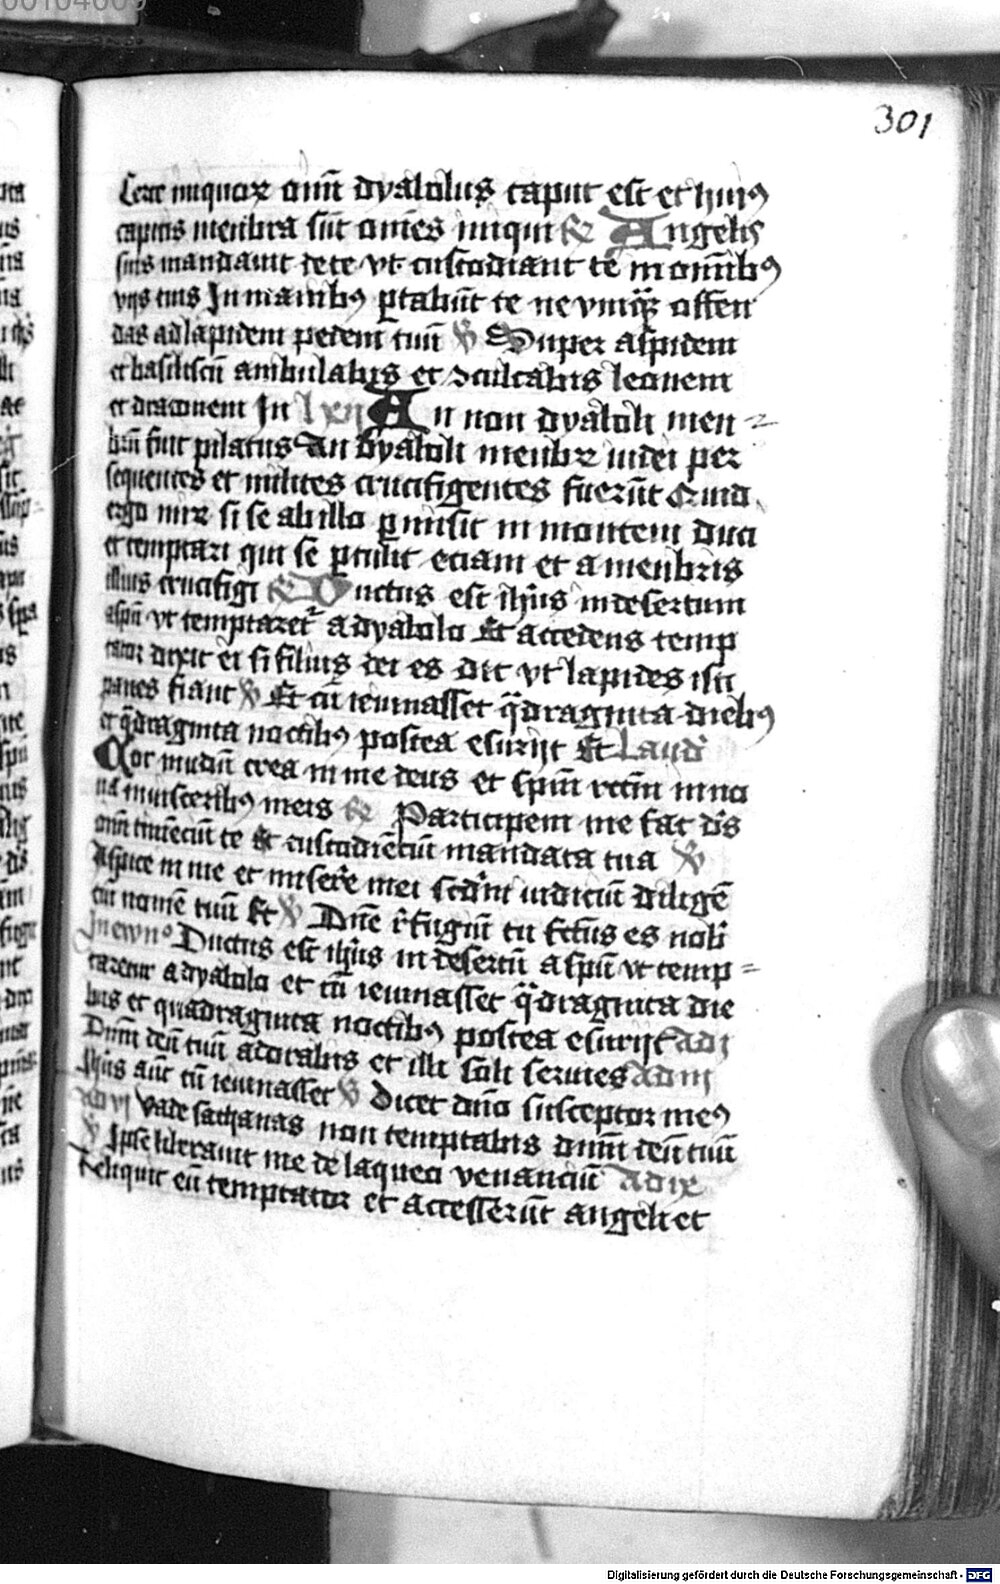 301
Certe iniquoꝝ om̄ dyabolus caput est et huiꝰ
capitis menbra sūt om̄es iniqui ℟ Angelis
suis mandauit de te vt custodiant te in om̄ibꝰ
vijs tuis In manibꝰ ꝑtabūt te ne vmqꝫ offen
das ad lapidem pedem tuū ℣ Super aspidem
et basiliscū ambulabis et 9culcabis leonem
et draconem In lxij An non dyaboli men-
brū fuit pilatus An dyaboli menbꝝ iudei per
sequentes et milites crucifigentes fuerūt Quid
ergo mirꝝ si se ab illo ꝑmisit in montem duci
et temptari qui se ꝑtulit eciam et a menbris
illius crucifigi ℟ Ductus est ih̄us in desertum
a spū vt temptaret᷑ a dyabolo Et accedens temp
tator dixit ei si filius dei es dic vt lapides isti
panes fiant ℣ Et cū ieiunasset q̄draginta diebꝰ
et q̄draginta noctibꝰ postea esurijt Et Laud᷑
Cor mūdū crea in me deus et spm̄ rectū inno
ua in visceribꝰ meis ℟ Participem me fac dn̄s
om̄ timēciū te Et custodiēciū mandata tua ℣
Aspice in me et miserē mei sedm̄ iudiciū diligē
ciū nomē tuū Et ℣ Dn̄e r̄fugiū tu fctūs es nob᷑
In ewnº Ductus est ih̄us in desertū a spū vt temp-
taretur a dyabolo et cū ieiunasset q̄draginta die
bus et quadraginta noctibꝰ postea esurijt Ad j
Dnm̄ deū tuū adorabis et illi soli seruies Ad iij
Ih̄us aūt cū ieiunasset ℣ Dicet dn̄o susceptor meꝰ
Ad vj Vade sathanas non temptabis dnm̄ deū tuū
℣ Ipse liberauit me de laqueo venanciū Ad ix
Reliquit eū temptator et accesserūt angeli et
Digitalisierung gefördert durch die Deutsche Forschungsgemeinschaft - DFG